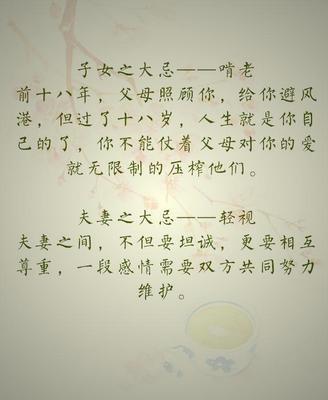 子女之大忌——啃老
前十八年，父母照顾你，给你避风
港，但过了十八岁，人生就是你自
己的了，你不能仗着父母对你的爱
就无限制的压榨他们。
夫妻之大忌——轻视
夫妻之间，不但要坦诚，更要相互
尊重，一段感情需要双方共同努力
维护。